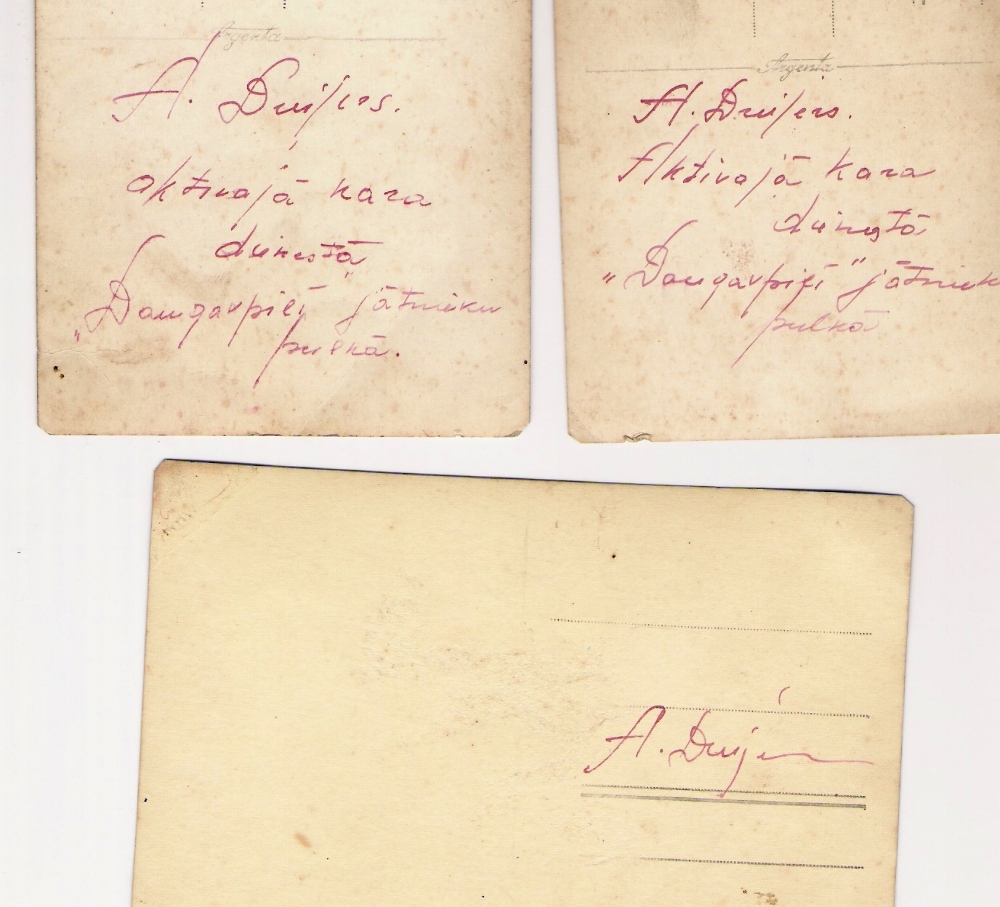 Argenta
A. Druijers.
aktivajā kara
dienestā
„Daugavpilī" jātnieku
pulkā.
Argenta
A. Druijers.
Aktivajā kara
dienestā
„Daugavpilī" jātniek
pulkā
A.